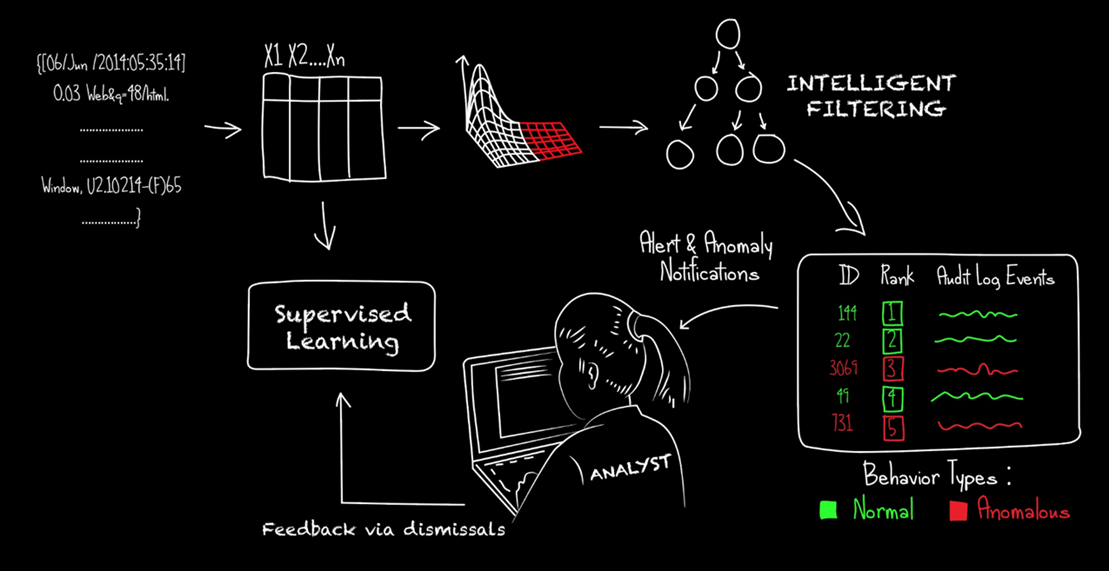 {[06/Jun /2014:05:35:14]
0.03 Web&q=48/html.
....................
....................
Window, U2.10214-(F)65
.................}
X1 X2....Xn
INTELLIGENT
FILTERING
Supervised
Learning
Alert & Anomaly
Notifications
ID Rank Audit Log Events
144 1
22 2
3069 3
49 4
731 5
Behavior Types :
Normal Anomalous
ANALYST
Feedback via dismissals